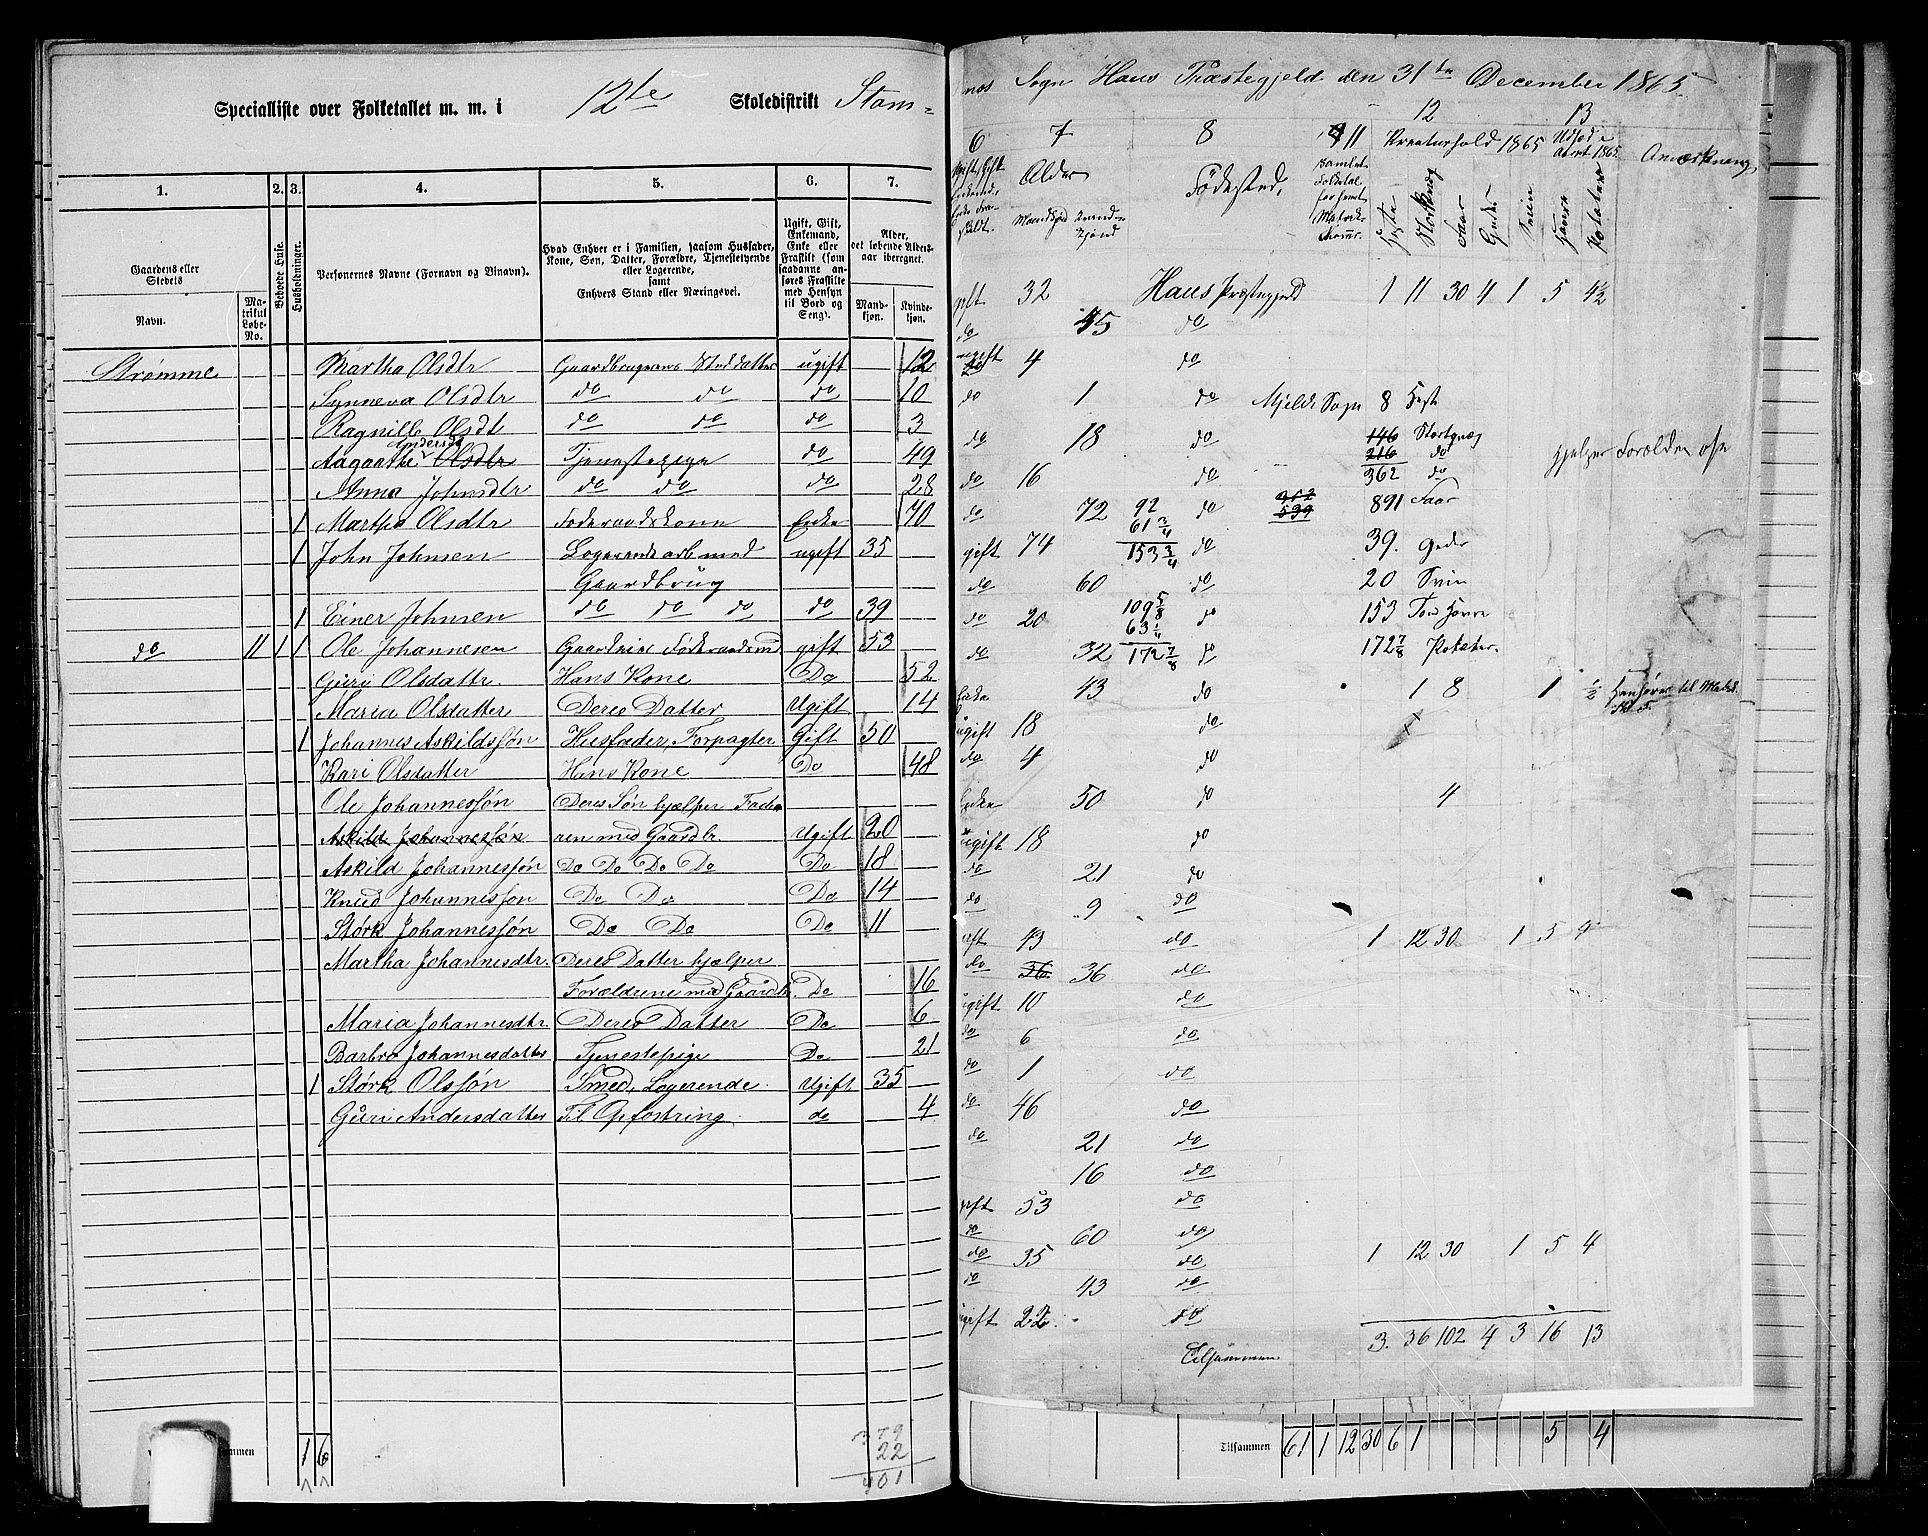 Specialliste over Folketallet m. m. i 12te Skoledistrikt Stam-
1. 2. 3. 4. 5. 6. 7.
Gaardens eller Stedets
Navn.
Matrikul Løbe-No.
Beboede Huse.
Husholdninger.
Personernes Navne (Fornavn og Binavn).
Hvad Enhver er i Familien, saasom Husfader, Kone, Søn, Datter, Forældre, Tjenestetyende eller Logerende,
samt
Enhvers Stand eller Næringsvei.
Ugift, Gift, Enkemand, Enke eller Fraskilt (som saadanne anføres Fraskilte med Hensyn til Bord og Seng).
Alder, det løbende Alders-aar iberegnet.
Mand-kjøn. Kvinde-kjøn.
Strømme Martha Olsdtr Gaardbrugerens Steddatter ugift 12
Synneva Olsdtr do do do 10
Ragnille Olsdt do do do 3
Aagaathe Andersd Olsdtr Tjenestepige do 49
Anna Johnsdtr do do do 28
1 Martha Olsdtr Føderaadskone Enke 70
1 John Johnsen Logerende arb med ugift 35
Gaardbrug
1 Einer Johnsen do do do do 39
do 11 1 1 Ole Johannesen Gaardeier Føderaadsmd gift 53
Guri Olsdattr. Hans Kone Do 52
Maria Olsdatter Deres Datter Ugift 14
1 Johannes Askildssøn Husfader, Forpagter Gift 50
Kari Olsdatter Hans Kone Do 48
Ole Johannessøn Deres Søn hjælper Fader
Askild Johannessøn ren med Gaardbr. Ugift 20
Askild Johannessøn Do Do Do Do Do 18
Knud Johannessøn Do Do Do 14
Størk Johannessøn Do Do Do 11
Martha Johannesdtr. Deres Datter hjælper
Forældrene med Gaardbr. Do 16
Maria Johannesdtr. Deres Datter Do 6
Barbro Johannesdatter Tjenestepige Do 21
1 Størk Olssøn Smed, Logerende Ugift 35
Guri Andersdatter Til Opfostring do 4
1 6
379
22
401
Sogn Haus Præstegjeld den 31te December 1865
6 7 8 11 12 13
Alder Fødested, Kreaturhold 1865 Udsæd Aaret 1865. Anmærkning
Mandkjød Kvindekjønd
Heste Storkvæg Faar Geder Sviin Havre Poteter
gift 32 Haus Præstegjeld 1 11 30 4 1 5 4½
do 45 do
ugift 4 do
do 1 do Mjelde Sogn 8 Hest
do 18 do 146 Stortqvæg hjelper Forældrene
216 do
do 16 do 362 do
do 72 92 do 352 891 Faar
61¾ 539
gift 74 153¾ do 39. Geder
do 60 do 20 Svin
do 20 109⅝ do 153 Tør Havre
63¼
do 32 172⅞ do 172⅞ Poteter.
Enke 43 do 1 8 1 ½ Henhører til Matr.
ugift 18 do
do 4 do
Enke 50 do 4
ugift 18 do
do 21 do
do 9 do
gift 43 do 1 12 30 1 5 4
do 36 36 do
ugift 10 do
do 6 do
do 1 do
do 46 do
do 21 do
16 do
gift 53 do
do 60 do
do 35 do 1 12 30 1 5 4
do 43 do
ugift 22 do
Tilsammen 3 36 102 4 3 16 13
Tilsammen 61 1 12 30 6 1 5 4